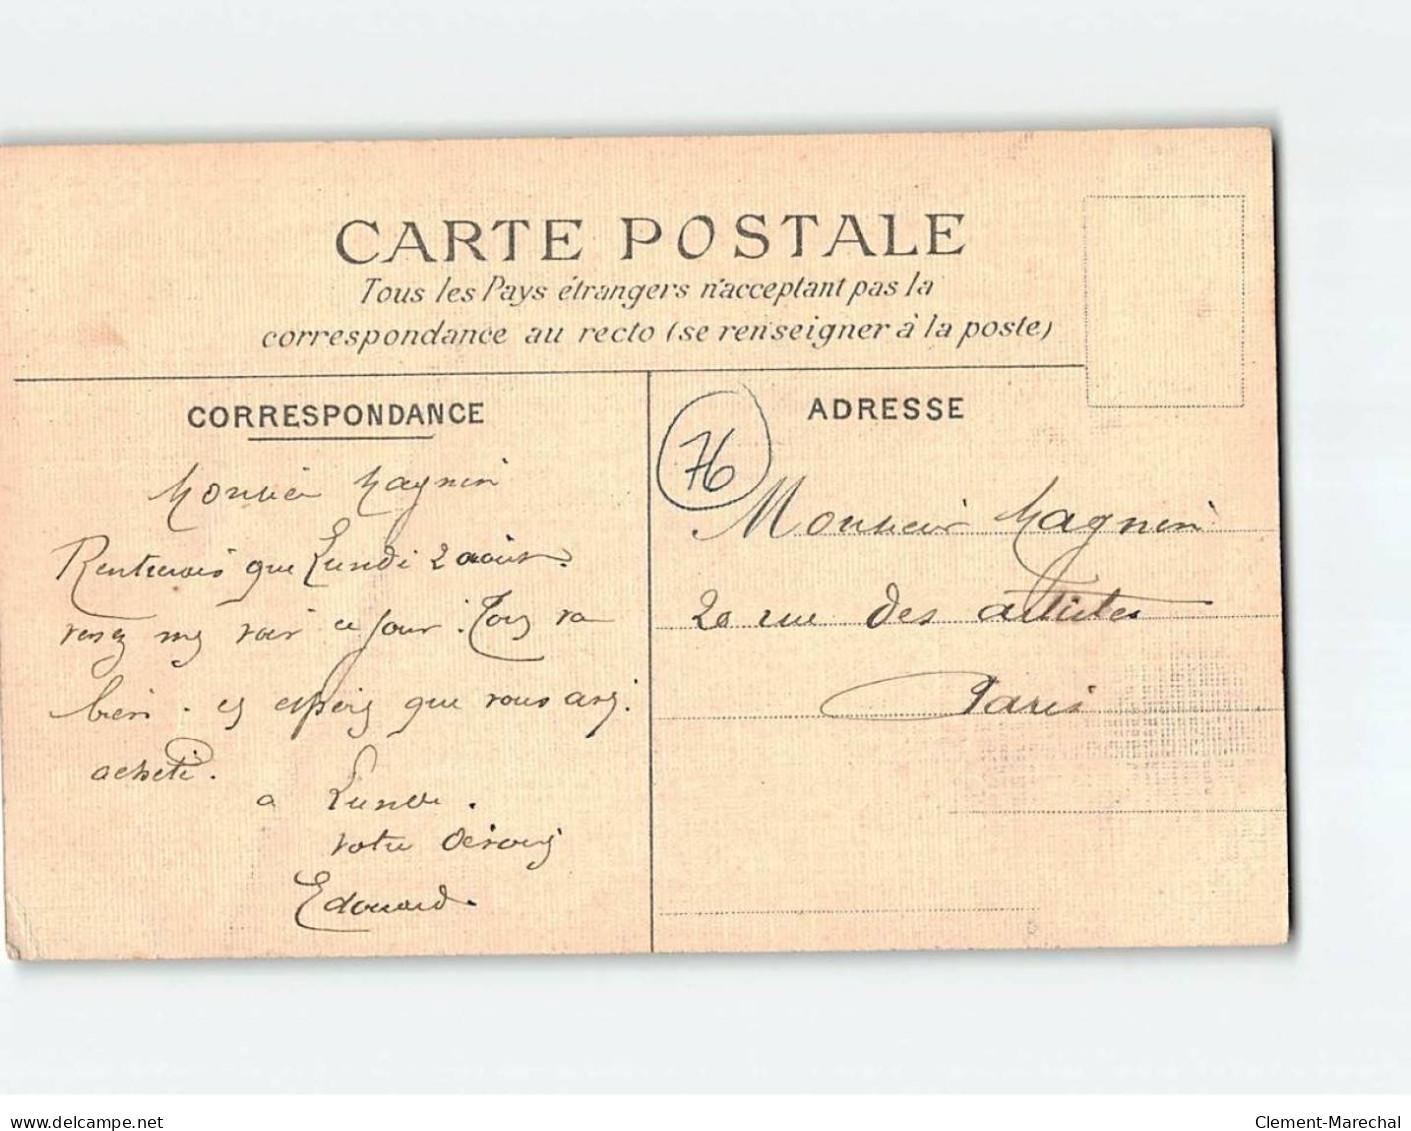 CARTE POSTALE
Tous les Pays étrangers n'acceptant pas la
correspondance au recto (se renseigner à la poste)
CORRESPONDANCE
Monsieur Magnin
Rentrerais que Lundi 2 août.
venez me voir ce jour. Tout va
bien. et espère que vous avez
acheté.
a Lundi.
votre dévoué
Edouard.
ADRESSE
76
Monsieur Magnin
20 rue des artistes
Paris
www.delcampe.net
Clement-Marechal